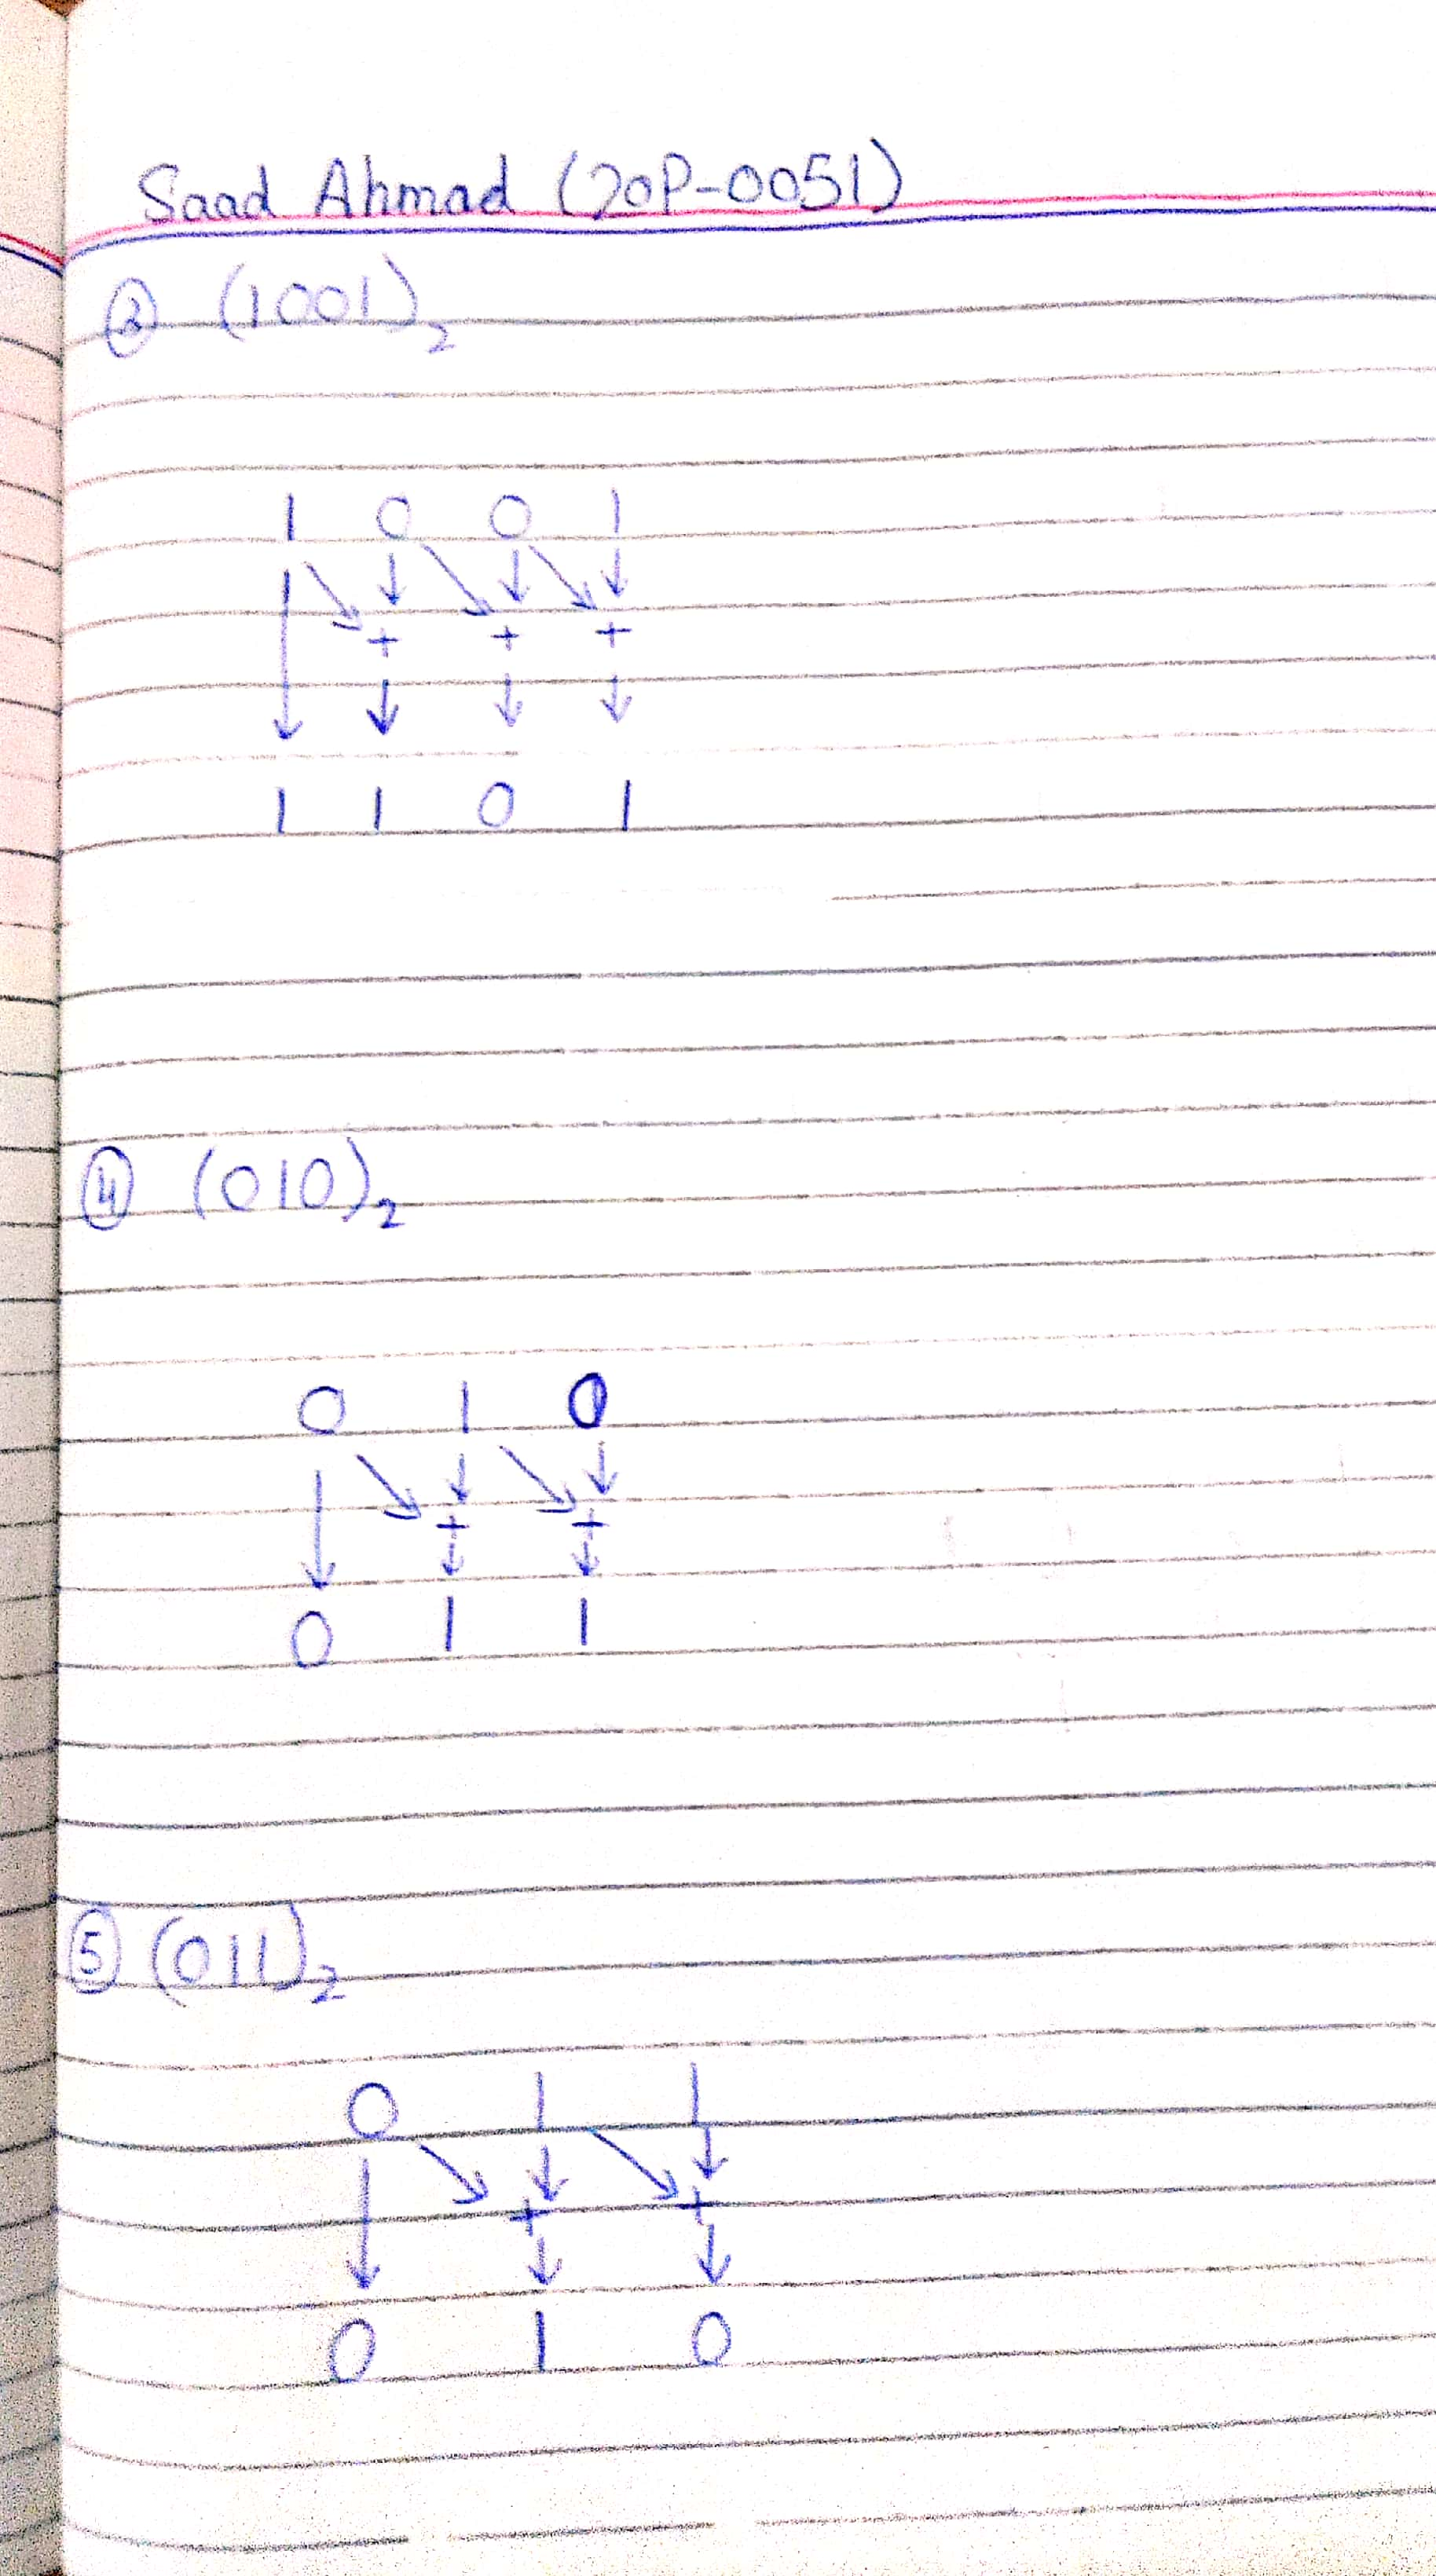 Saad Ahmad (20P-0051)
③ (1001)₂
1 0 0 1
+ + +
1 1 0 1
④ (010)₂
0 1 0
+ +
0 1 1
⑤ (011)₂
0 1 1
+ +
0 1 0